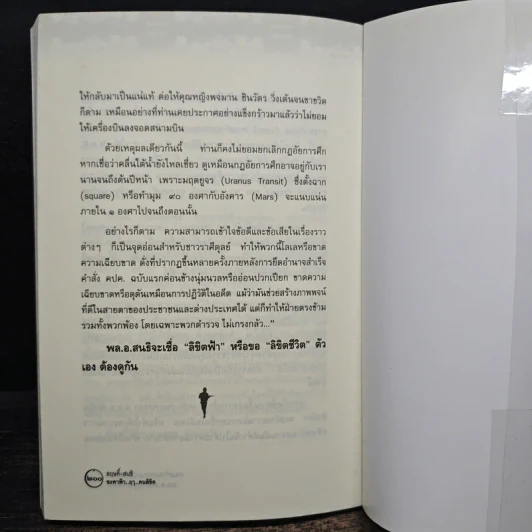 ให้กลับมาเป็นแน่แท้ ต่อให้คุณหญิงพจมาน ชินวัตร วิ่งเต้นจนขาขวิด
ก็ตาม เหมือนอย่างที่ท่านเคยประกาศอย่างแข็งกร้าวมาแล้วว่าไม่ยอม
ให้เครื่องบินลงจอดสนามบิน
ด้วยเหตุผลเดียวกันนี้ ท่านก็คงไม่ยอมยกเลิกกฎอัยการศึก
หากเชื่อว่าคลื่นใต้น้ำยังไหลเชี่ยว ดูเหมือนกฎอัยการศึกอาจอยู่กับเรา
นานจนถึงต้นปีหน้า เพราะมฤตยูจร (Uranus Transit) ซึ่งตั้งฉาก
(square) หรือทำมุม ๙๐ องศากับอังคาร (Mars) จะแนบแน่น
ภายใน ๑ องศาไปจนถึงตอนนั้น
อย่างไรก็ตาม ความสามารถเข้าใจข้อดีและข้อเสียในเรื่องราว
ต่างๆ ก็เป็นจุดอ่อนสำหรับชาวราศีตุลย์ ทำให้พวกนี้โลเลหรือขาด
ความเฉียบขาด ดั่งที่ปรากฏขึ้นหลายครั้งภายหลังการยึดอำนาจสำเร็จ
คำสั่ง คปค. ฉบับแรกค่อนข้างนุ่มนวลหรืออ่อนปวกเปียก ขาดความ
เฉียบขาดหรือดุดันเหมือนการปฏิวัติในอดีต แม้ว่ามันช่วยสร้างภาพพจน์
ที่ดีในสายตาของประชาชนและต่างประเทศได้ แต่ก็ทำให้ฝ่ายตรงข้าม
รวมทั้งพวกพ้อง โดยเฉพาะพวกตำรวจ ไม่เกรงกลัว..."
พล.อ.สนธิจะเชื่อ "ลิขิตฟ้า" หรือขอ "ลิขิตชีวิต" ตัว
เอง ต้องดูกัน
๒๐๐
สนธิ
ชะตาฟ้า..ฤๅ..คนลิขิต